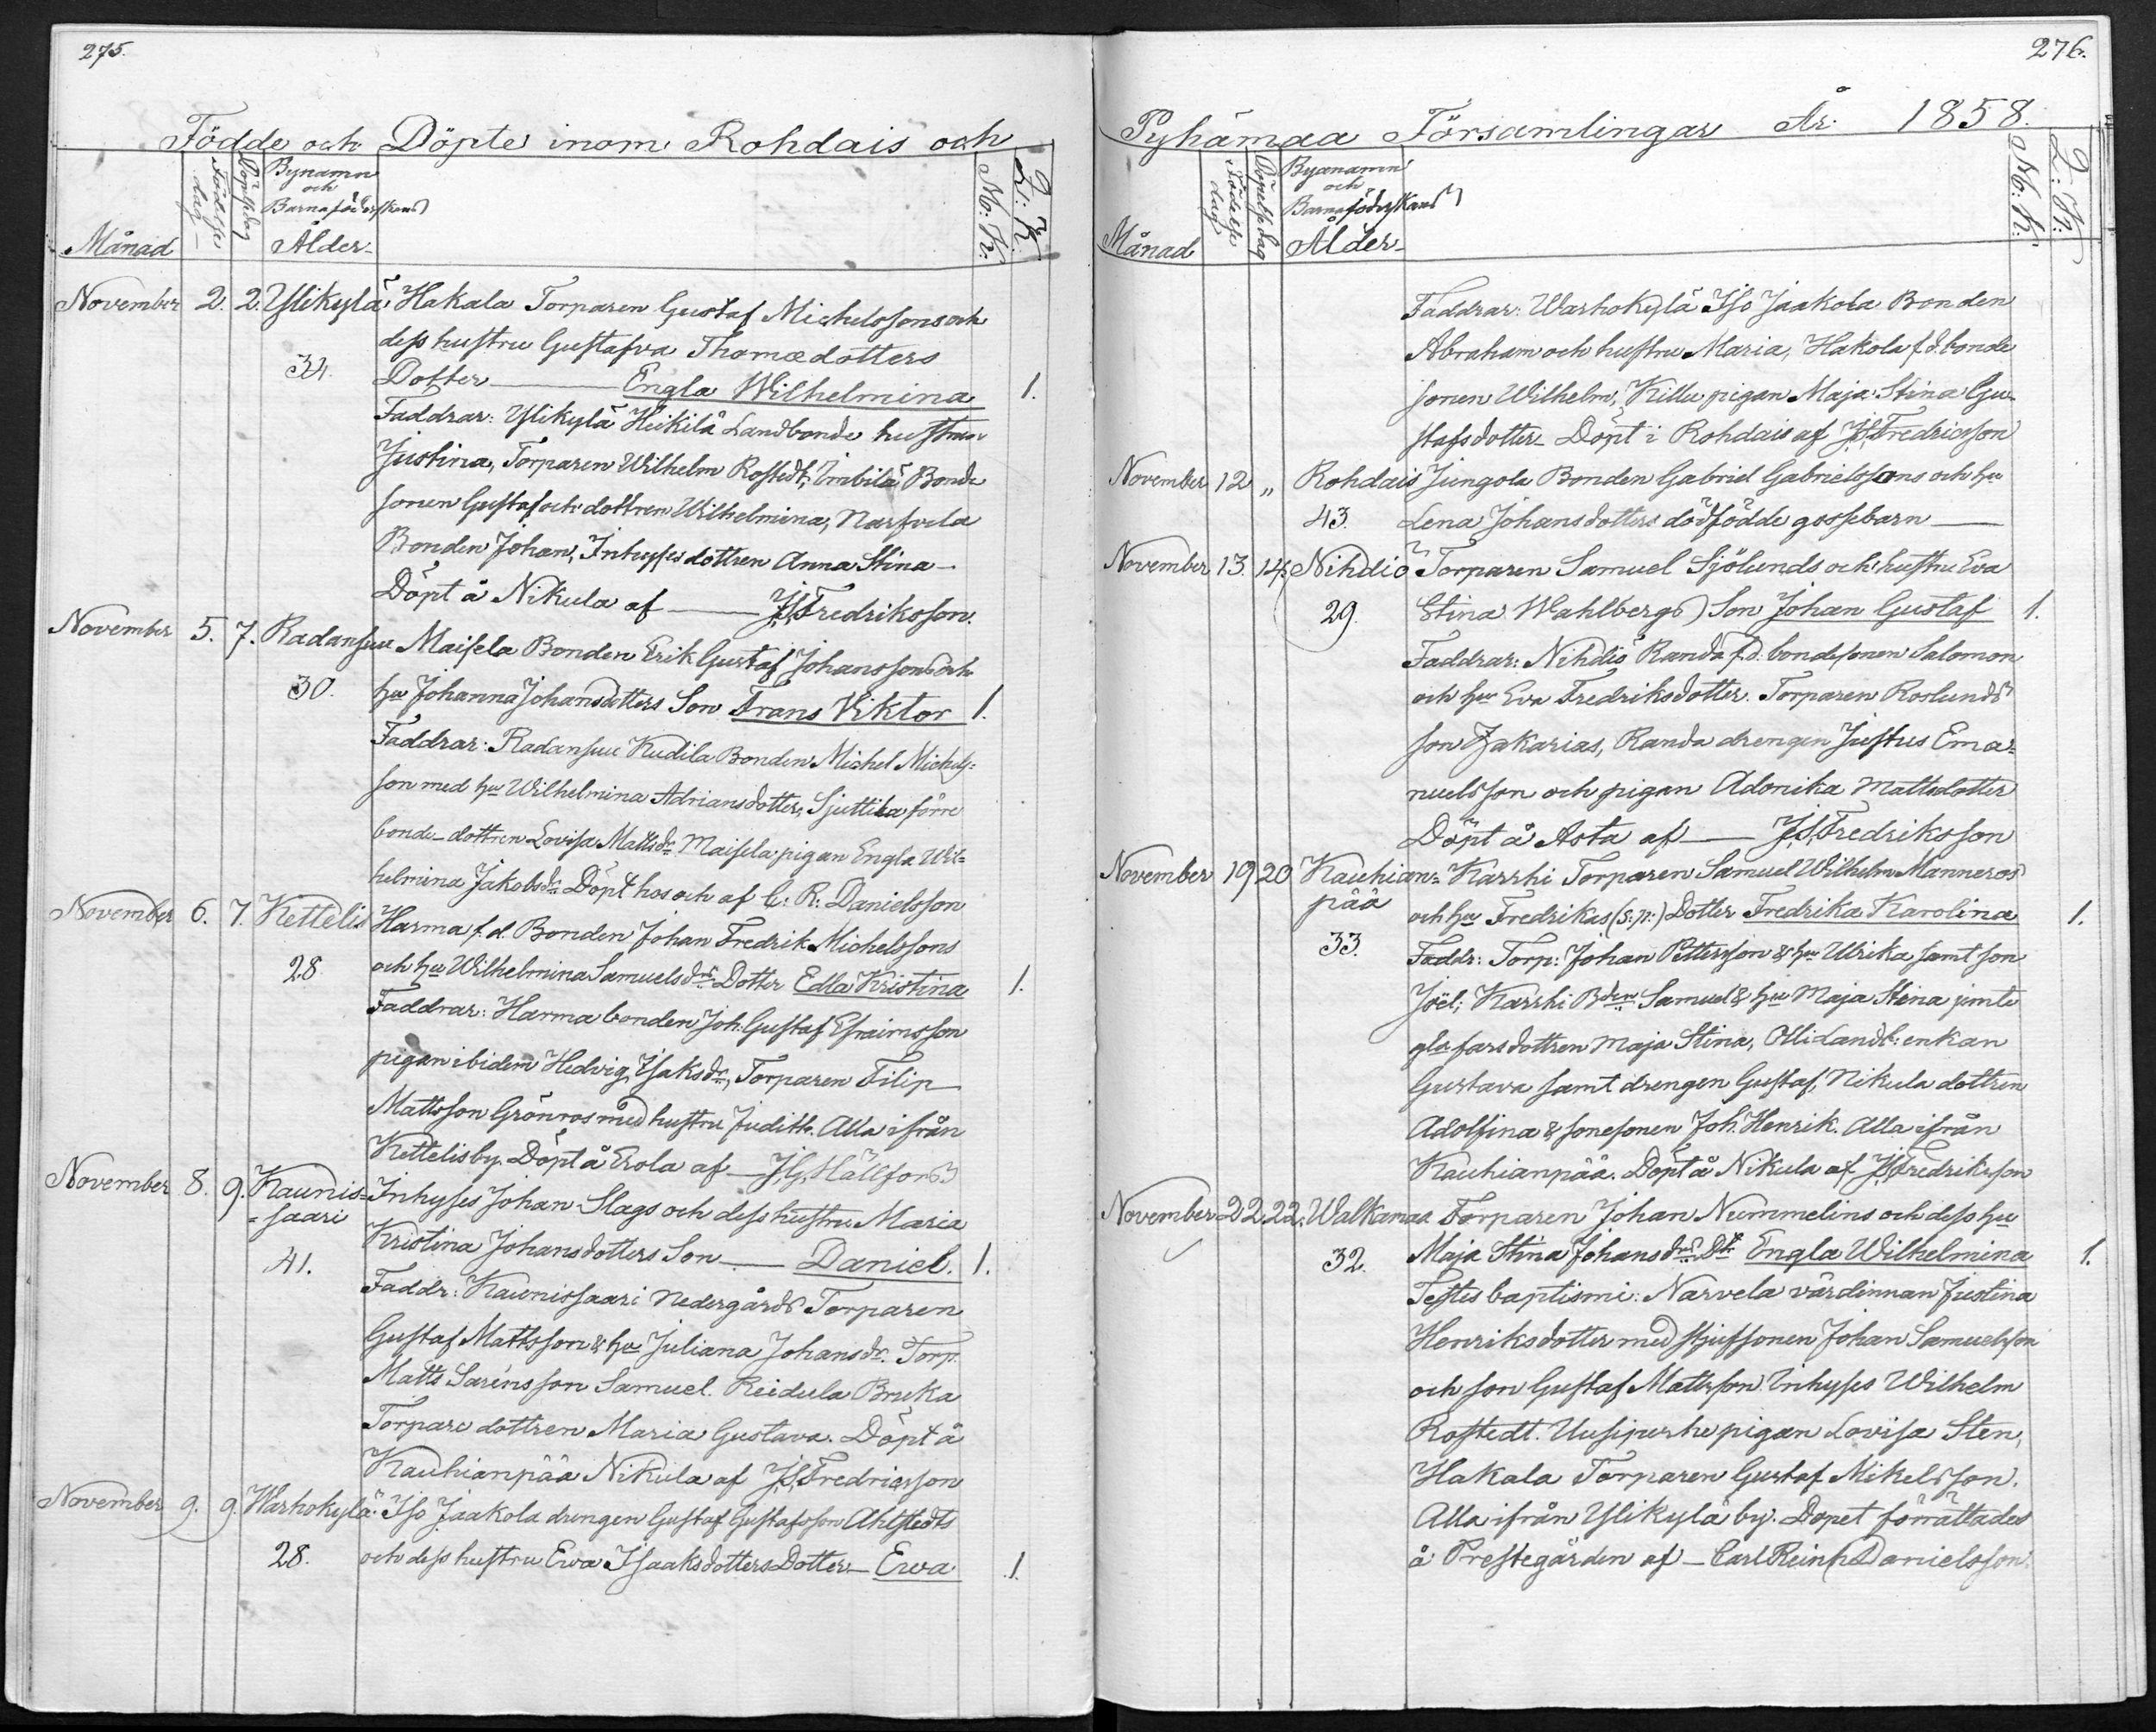 275.
Födde och Döpte inom Rohdais och
Månad
Födelse dag
Döpelsedag
Bynamn
och
Barnaföderskans
Ålder
M: K:
Q: K:
November 2. 2. Ylikylä Hakala Torparen Gustaf Michelssons och
dess hustru Gustafva Thomædotters
34. Dotter — Engla Wilhelmina 1.
Faddrar: Ylikylä Heikilä Landbonde hustrun
Justina, Torparen Wilhelm Rostedt, Imbilä Bonde
sonen Gustaf och dottren Wilhelmina, Narfvela
Bonden Johan, Inhyses dottren Anna Stina —
Döpt å Nikula af — J.S. Fredriksson.
November 5. 7. Radansuu Maisela Bonden Erik Gustaf Johanssons och
30. hu Johanna Johansdotters Son Frans Viktor 1.
Faddrar: Radansuu Kudila Bonden Michel Michels=
son med hu Wilhelmina Adriansdotter, Sjuttila förre
bonde-dottren Lovisa Mattsdr Maisela pigan Engla Wil=
helmina Jakobsdr Döpt hos och af C: R: Danielsson
November 6. 7. Kettelis Harma f.d. Bonden Johan Fredrik Michelssons
28. och hu Wilhelmina Samuelsdrs Dotter Edla Kristina 1.
Faddrar: Harma bonden Joh: Gustaf Efraimsson
pigan ibidem Hedvig Isaksdr, Torparen Filip
Mattsson Grönroos med hustru Judith. Alla ifrån
Kettelisby. Döpt å Erola af — J.G. Hällfors
November 8. 9. Kaunis= Inhyses Johan Slags och dess hustru Maria
=saari Kristina Johansdotters Son — Daniel. 1.
41. Faddr: Kaunissaari Nedergårds Torparen
Gustaf Mattsson & hu Juliana Johansdr. Torp.
Matts Sarénsson Samuel. Reidula Bruka
Torpare dottren Maria Gustava. Döpt å
Kauhianpää Nikula af J.S. Fredricsson
November 9. 9. Warhokylä Iso Jaakola drengen Gustaf Gustafsson Ahlstedts
28. och dess hustru Ewa Isaaksdotters Dotter — Ewa 1.
276.
Pyhämaa Församlingar År 1858.
Månad
Födelse dag
Döpelse dag
Byanamn
och
Barnaföderskans
Ålder
M: K:
Q: K:
Faddrar: Warhokylä Iso Jaakola Bonden
Abraham och hustru Maria, Hakola f.d. bonde
sonen Wilhelm, Killu pigan Maja Stina Gu-
stafsdotter. Döpt i Rohdais af J.S. Fredricsson
November 12 „ Rohdais Jungola Bonden Gabriel Gabrielssons och hu
43. Lena Johansdotters dödfödde gossebarn —
November 13. 14. Nihdiö Torparen Samuel Sjölunds och hustru Eva
29. Stina Wahlbergs Son Johan Gustaf 1.
Faddrar: Nihdiö Randa f.d. bondesonen Salomon
och hu Eva Fredriksdotter. Torparen Roslunds
son Zakarias, Randa drengen Justus Ema=
nuelsson och pigan Adonika Mattsdotter
Döpt å Asta af — J.S. Fredriksson
November 19 20 Kauhian= Karrhi Torparen Samuel Wilhelm Manneros
pää och hu Fredrikas (S: p:) Dotter Fredrika Karolina 1.
33. Faddr: Torp: Johan Pettersson & hu Ulrika samt son
Joël; Karrhi Bden Samuel & hu Maja Stina jemte
gla farsdottren Maja Stina, Olli Landb: enkan
Gustava samt drengen Gustaf, Nikula dottren
Adolfina & sonesonen Joh. Henrik. Alla ifrån
Kauhianpää. Döpt å Nikula af J.S. Fredriksson
November 22 22. Walkamaa Torparen Johan Nummelins och dess hu
32. Maja Stina Johansdrs Dtr Engla Wilhelmina 1.
Testes baptismi: Narvela värdinnan Justina
Henriksdotter med stjufsonen Johan Samuelsson
och son Gustaf Mattsson. Inhyses Wilhelm
Rostedt. Uusipurhe pigan Lovisa Sten,
Hakala Torparen Gustaf Mikelsson.
Alla ifrån Ylikylä by. Dopet förrättades
å Prestegården af — Carl Reinh. Danielsson.